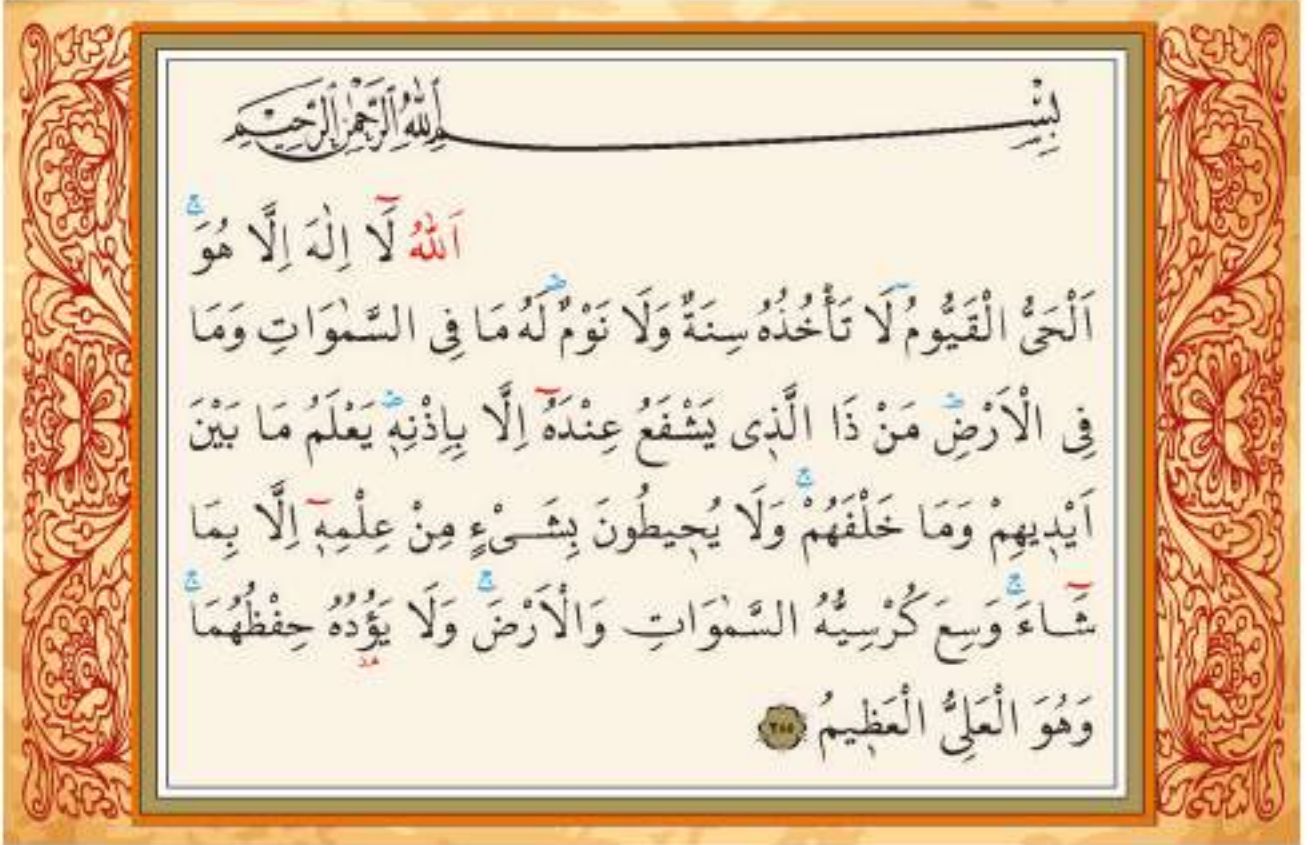 بِسْمِ ٱللّٰهِ ٱلرَّحْمٰنِ ٱلرَّحِيمِ
اَللّٰهُ لَٓا اِلٰهَ اِلَّا هُوَۚ
اَلْحَىُّ الْقَيُّومُۚ لَا تَأْخُذُهُ سِنَةٌ وَلَا نَوْمٌۜ لَهُ مَا فِى السَّمٰوَاتِ وَمَا
فِى الْاَرْضِۜ مَنْ ذَا الَّذٖى يَشْفَعُ عِنْدَهُٓ اِلَّا بِاِذْنِهٖۜ يَعْلَمُ مَا بَيْنَ
اَيْدٖيهِمْ وَمَا خَلْفَهُمْۚ وَلَا يُحٖيطُونَ بِشَىْءٍ مِنْ عِلْمِهٖٓ اِلَّا بِمَا
شَٓاءَۚ وَسِعَ كُرْسِيُّهُ السَّمٰوَاتِ وَالْاَرْضَۚ وَلَا يَؤُدُهُ حِفْظُهُمَاۚ
مد
وَهُوَ الْعَلِىُّ الْعَظٖيمُ ﴿٢٥٥﴾